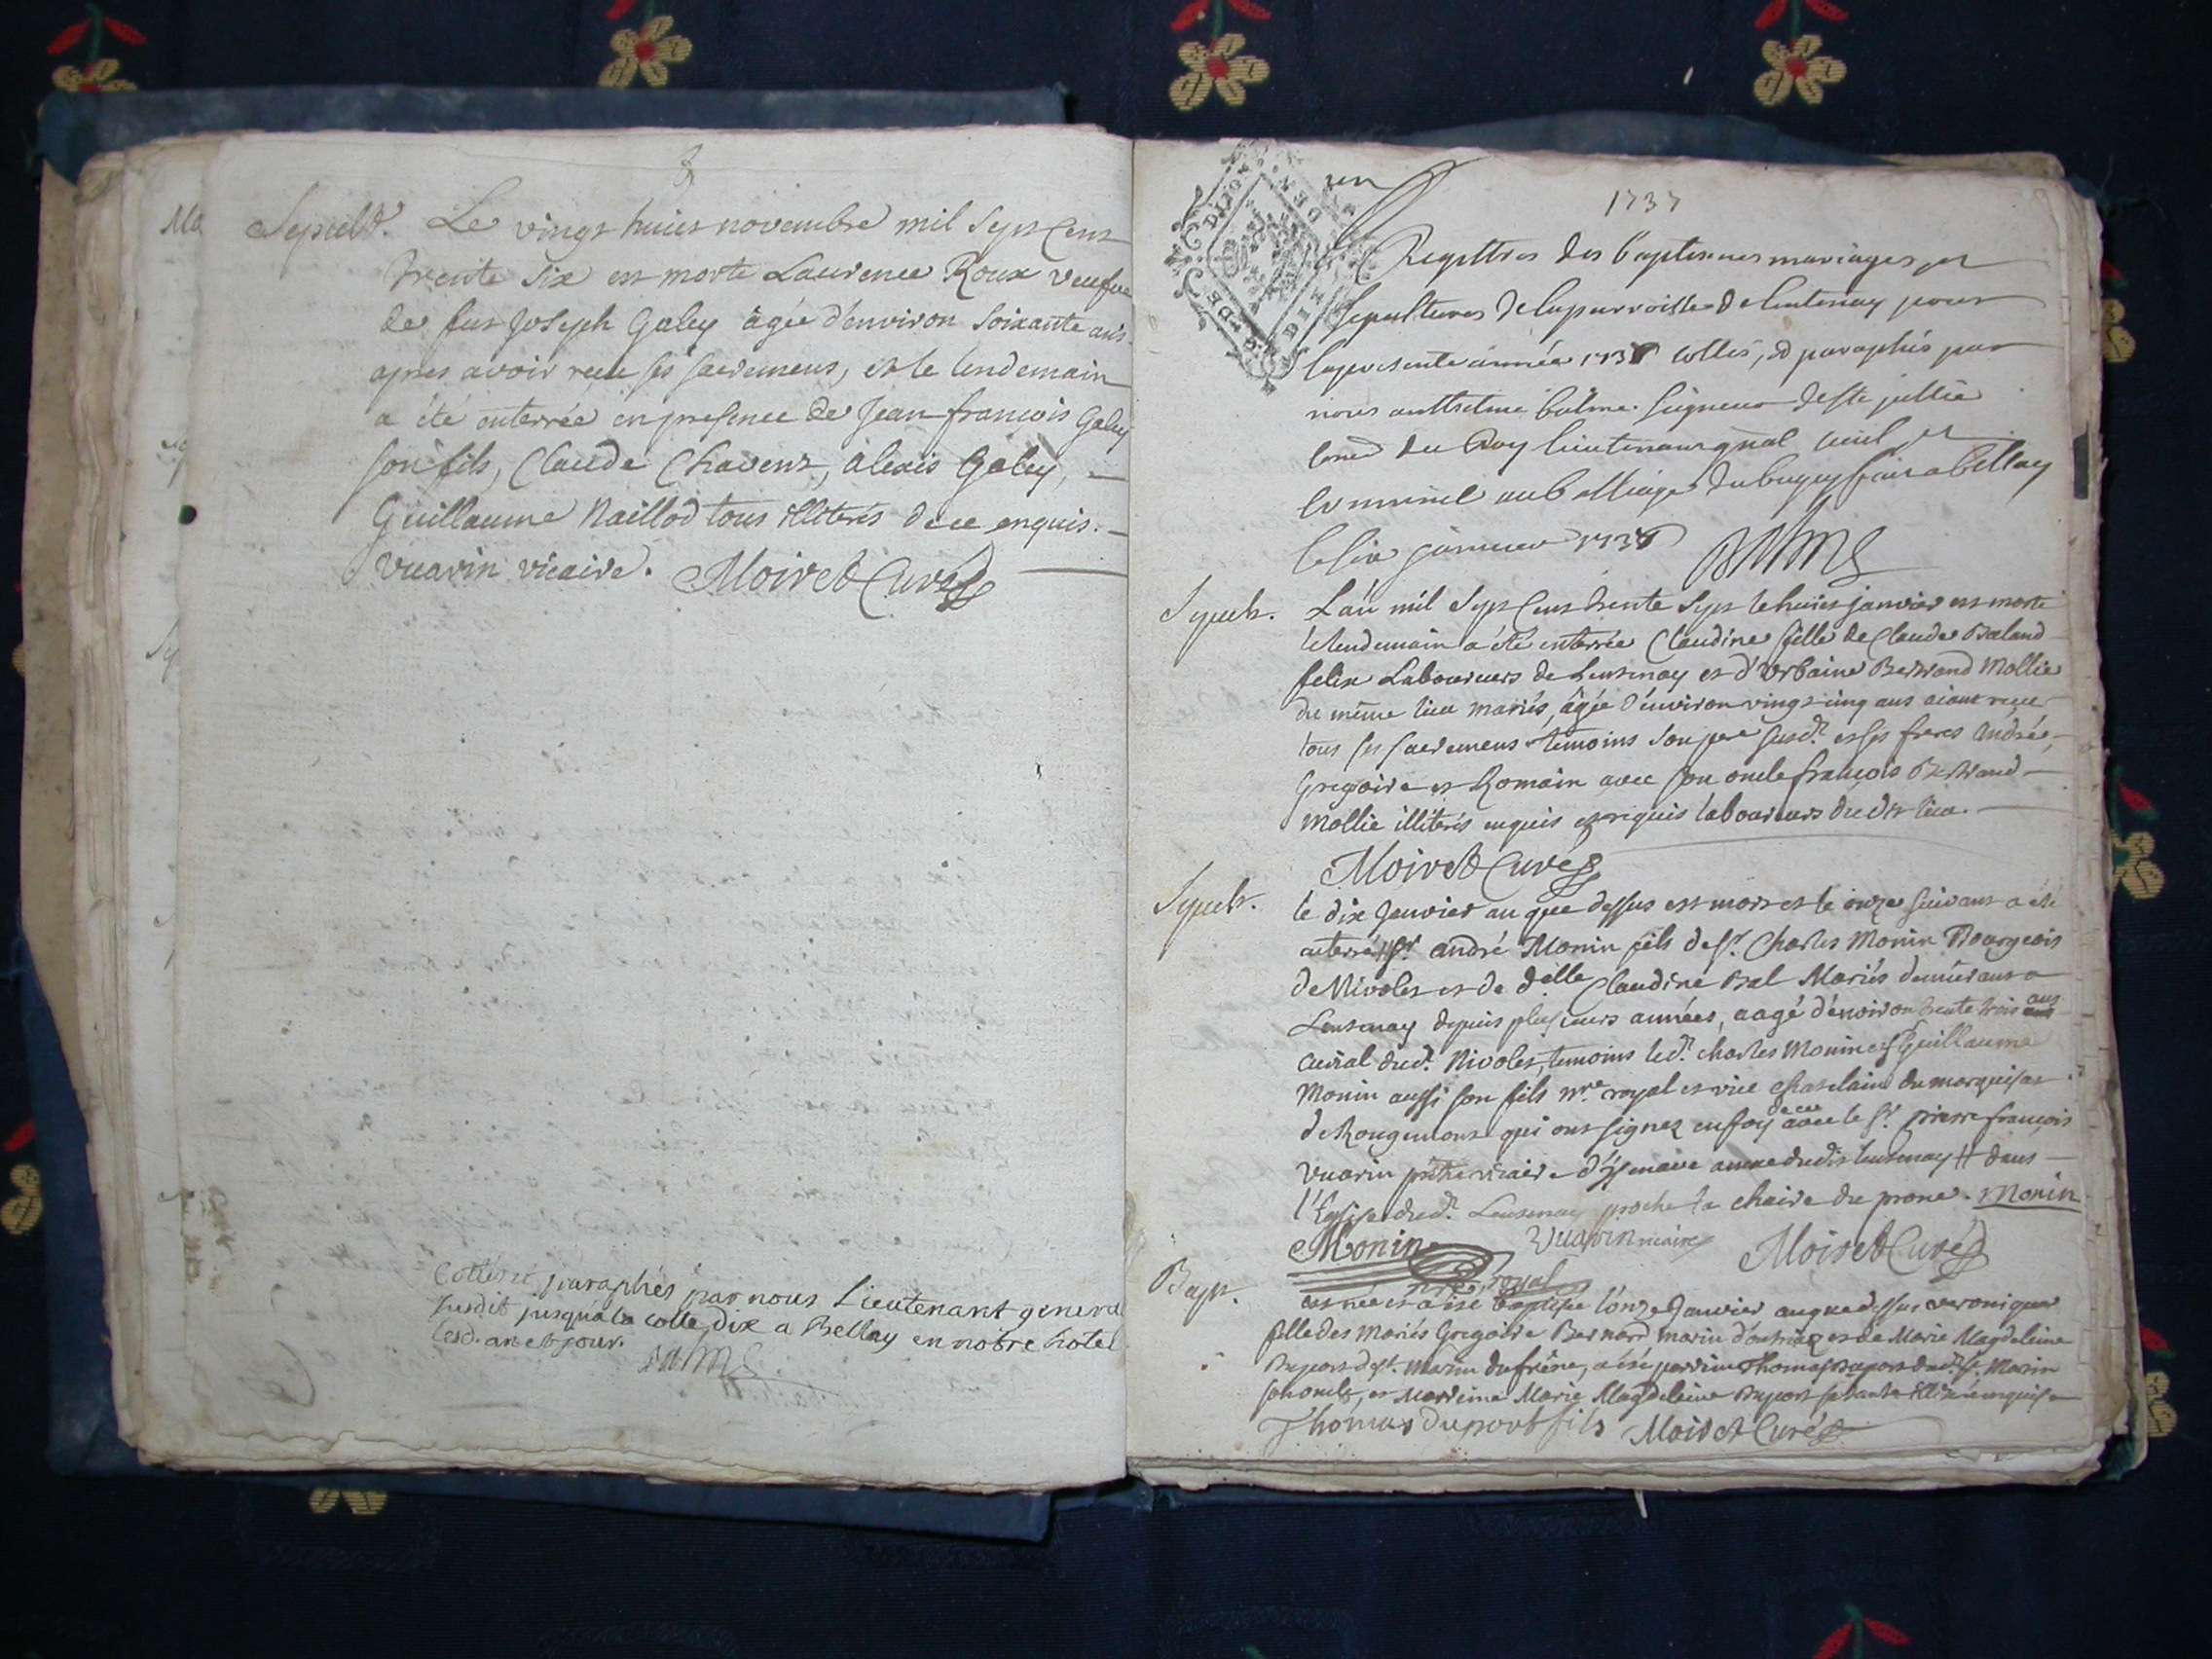 Sepult. Le vingt huit novembre mil sept cent
trente six est morte Laurence Roux veufve
de fut Joseph Galey âgée d'environ soixante ans
apres avoir receu ses sacremens, et le lendemain
a été enterrée en presence de Jean francois Galey
son fils, Claude Chavent, alexis Galey,
Guillaume Naillod tous illiterés de ce enquis.
Vuarin vicaire. Moiret Curé
Cottés et paraphés par nous Lieutenant general
susdit jusqu'a la cotte dix a Bellay en nôtre hotel
lesd. an et jour.
un
1737
Registres des baptesmes mariages et
sepultures de la parroisse de lentenay pour
la presente année 1737 cottés, et paraphés par
nous anthelme balme seigneur de ste jullie
du Roy lieutenant gnal civil et
criminel au balliage du bugey fait a bellay
le six janvier 1737 Balme
Sepult. L'an mil sept cens trente sept le huit janvier est morte
le lendemain a été enterrée Claudine fille de Claude Baland
felix Laboureurs de Lentenay et d'Urbaine Bertrand Mollie
du même lieu mariés, âgée d'environ vingt cinq ans aiant receu
tous ses sacremens temoins son pere susd. et ses freres André,
Gregoire et Romain avec son oncle françois Bertrand
Mollie illiterés enquis et requis laboureurs du dt lieu.
Moiret Curé
Sepult. le dix Janvier an que dessus est mort et le onze suivant a été
enterré sr. andré Monin fils de sr. Charles Monin Bourgeois
de Nivolet et de delle Claudine Bal Mariés demeurant a
Lentenay depuis plusieurs années, aagé d'environ trente trois ans
du d. Nivolet, temoins led. Charles Monin et sr Guillaume
Monin aussi son fils nre. royal et vice chatelain du marquisat
de Rougemont qui ont signez en foy de ce avec le sr. pierre françois
Vuarin prêtre vicaire d'Izenave annexe dudit Lentenay # dans
l'Eglise dud. Lentenay proche la chaire du prone. Monin
Monin Vuarin vicaire Moiret Curé
nre. royal
Bapt. est née et a été baptisée l'onze Janvier an que dessus veronique
fille des mariés Gregoire Bernard marin d'outriaz et de Marie Magdeleine
Duport de st. Martin du frêne, a été parrein Thomas Duport dud. st. Martin
son oncle, et Marreine Marie Magdeleine Duport sa tante illiterée enquise
Thomas duport fils Moiret Curé